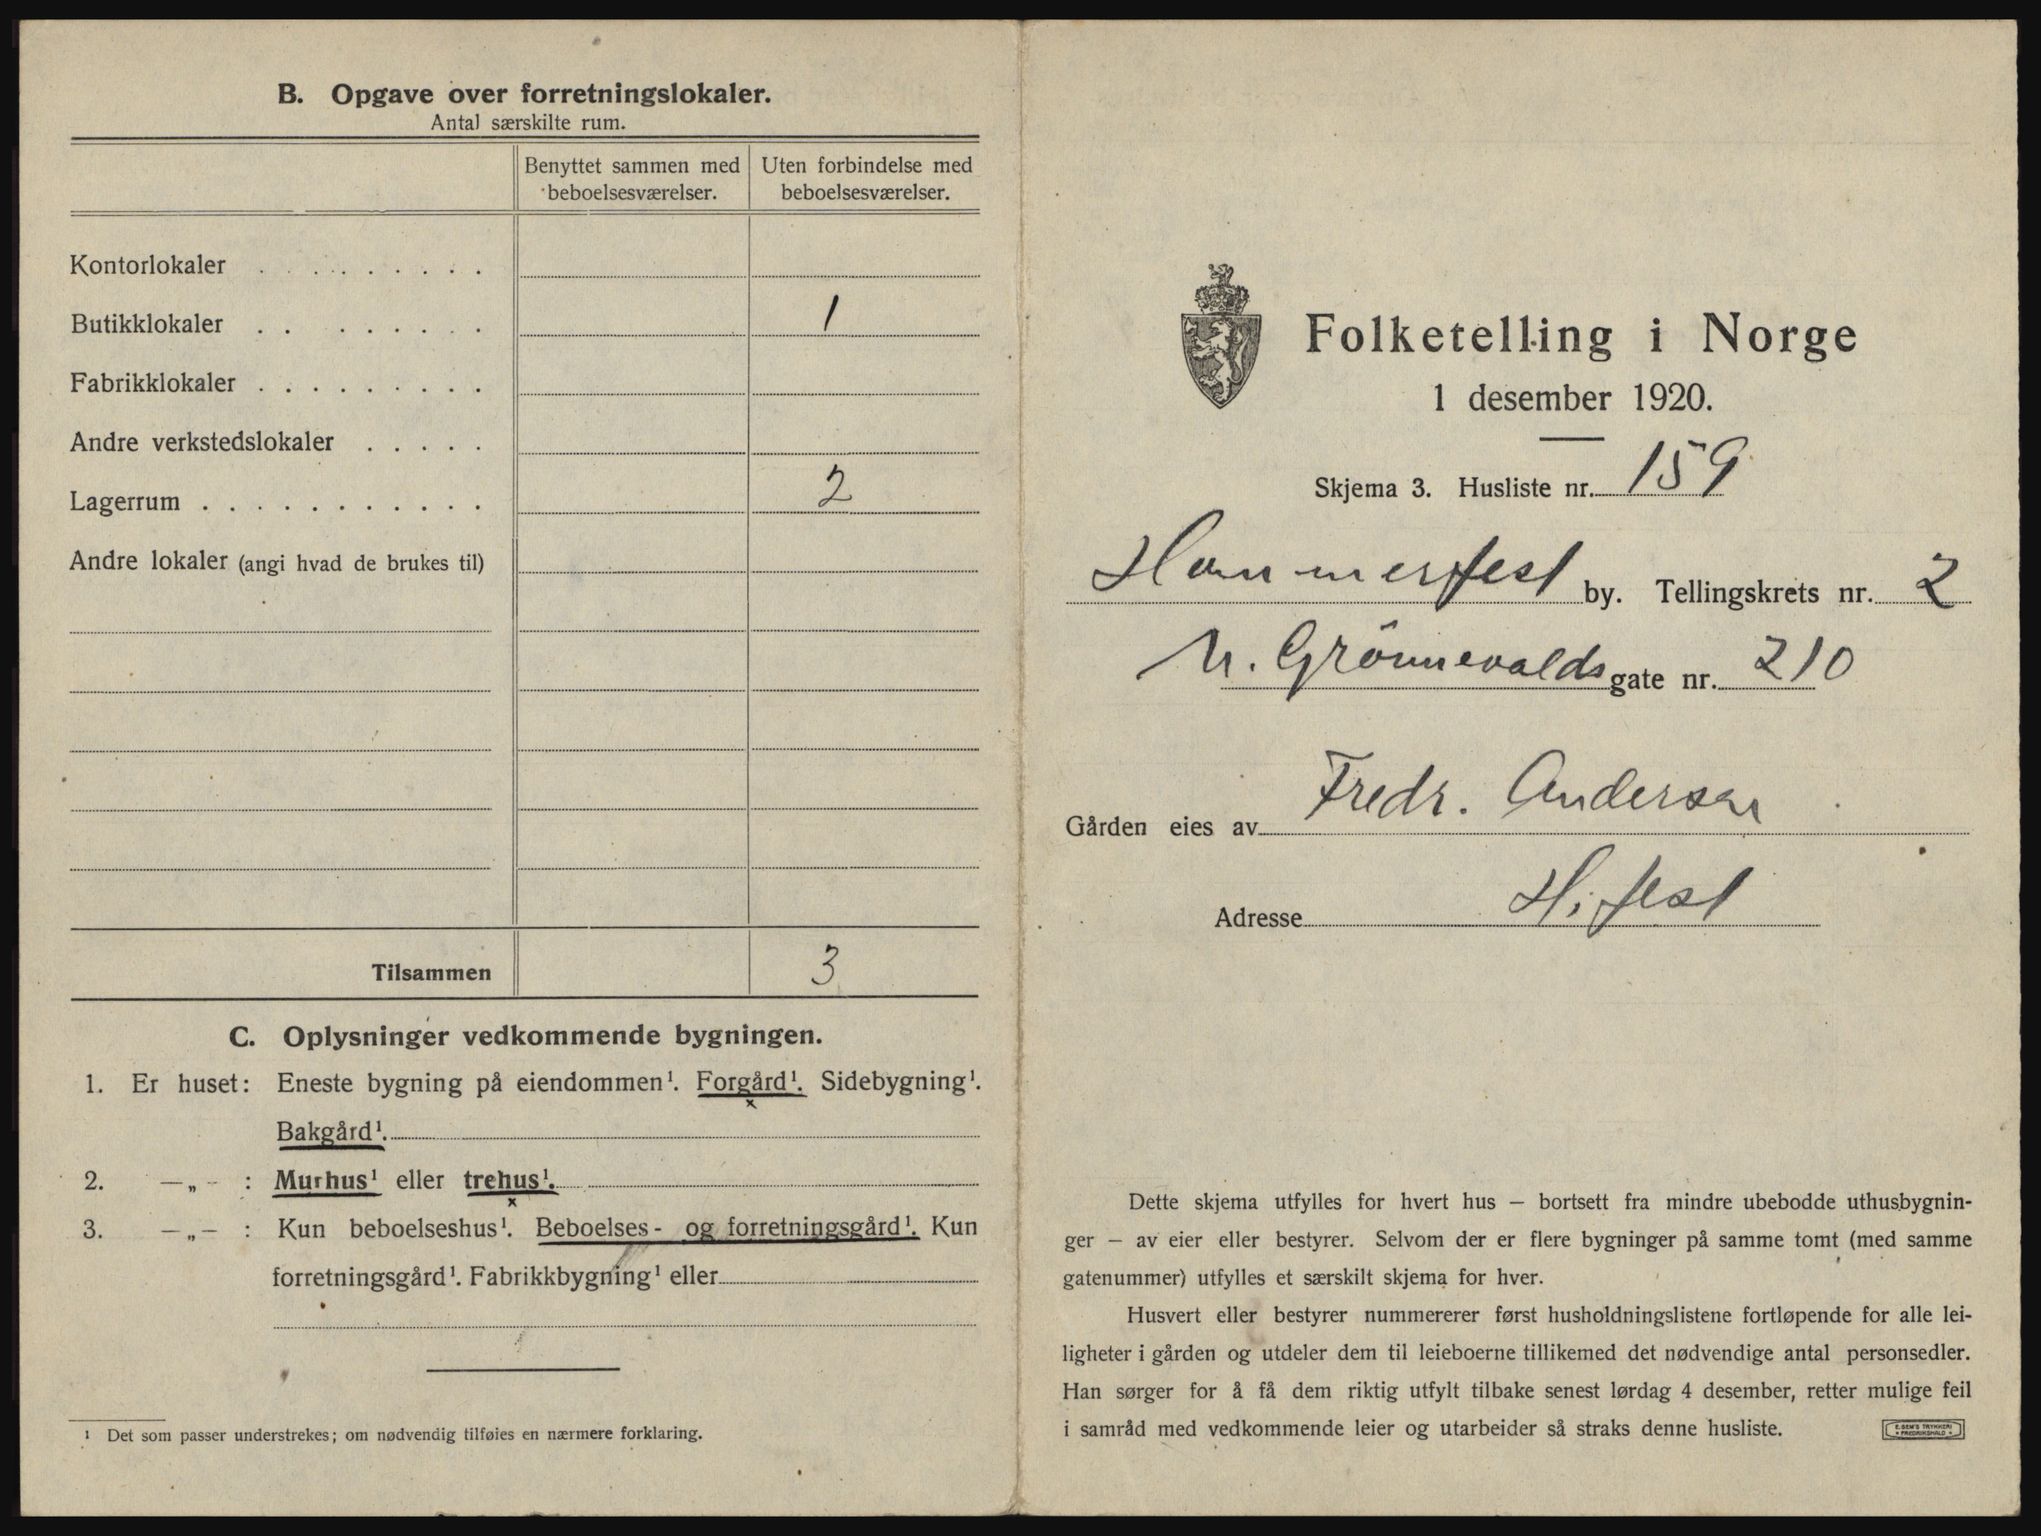 B. Opgave over forretningslokaler.
Antal særskilte rum.
Benyttet sammen med beboelsesværelser.
Uten forbindelse med beboelsesværelser.
Kontorlokaler . . . . . . . . .
Butikklokaler . . . . . . . . 1
Fabrikklokaler . . . . . . . . .
Andre verkstedslokaler . . . . .
Lagerrum . . . . . . . . . . . 2
Andre lokaler (angi hvad de brukes til)
Tilsammen 3
C. Oplysninger vedkommende bygningen.
1. Er huset: Eneste bygning på eiendommen¹. Forgård¹. Sidebygning¹.
x
Bakgård¹.
2. —„— : Murhus¹ eller trehus¹.
x
3. —„— : Kun beboelseshus¹. Beboelses- og forretningsgård¹. Kun
forretningsgård¹. Fabrikkbygning¹ eller
¹ Det som passer understrekes; om nødvendig tilføies en nærmere forklaring.
Folketelling i Norge
1 desember 1920.
Skjema 3. Husliste nr. 159
Hammerfest by. Tellingskrets nr. 2
N. Grönnevolds gate nr. 210
Gården eies av Fredr. Andersen
Adresse H.fest
Dette skjema utfylles for hvert hus — bortsett fra mindre ubebodde uthusbygnin-
ger — av eier eller bestyrer. Selvom der er flere bygninger på samme tomt (med samme
gatenummer) utfylles et særskilt skjema for hver.
Husvert eller bestyrer nummererer først husholdningslistene fortløpende for alle lei-
ligheter i gården og utdeler dem til leieboerne tillikemed det nødvendige antal personsedler.
Han sørger for å få dem riktig utfylt tilbake senest lørdag 4 desember, retter mulige feil
i samråd med vedkommende leier og utarbeider så straks denne husliste.
E. SEM'S TRYKKERI
• FREDRIKSHALD •